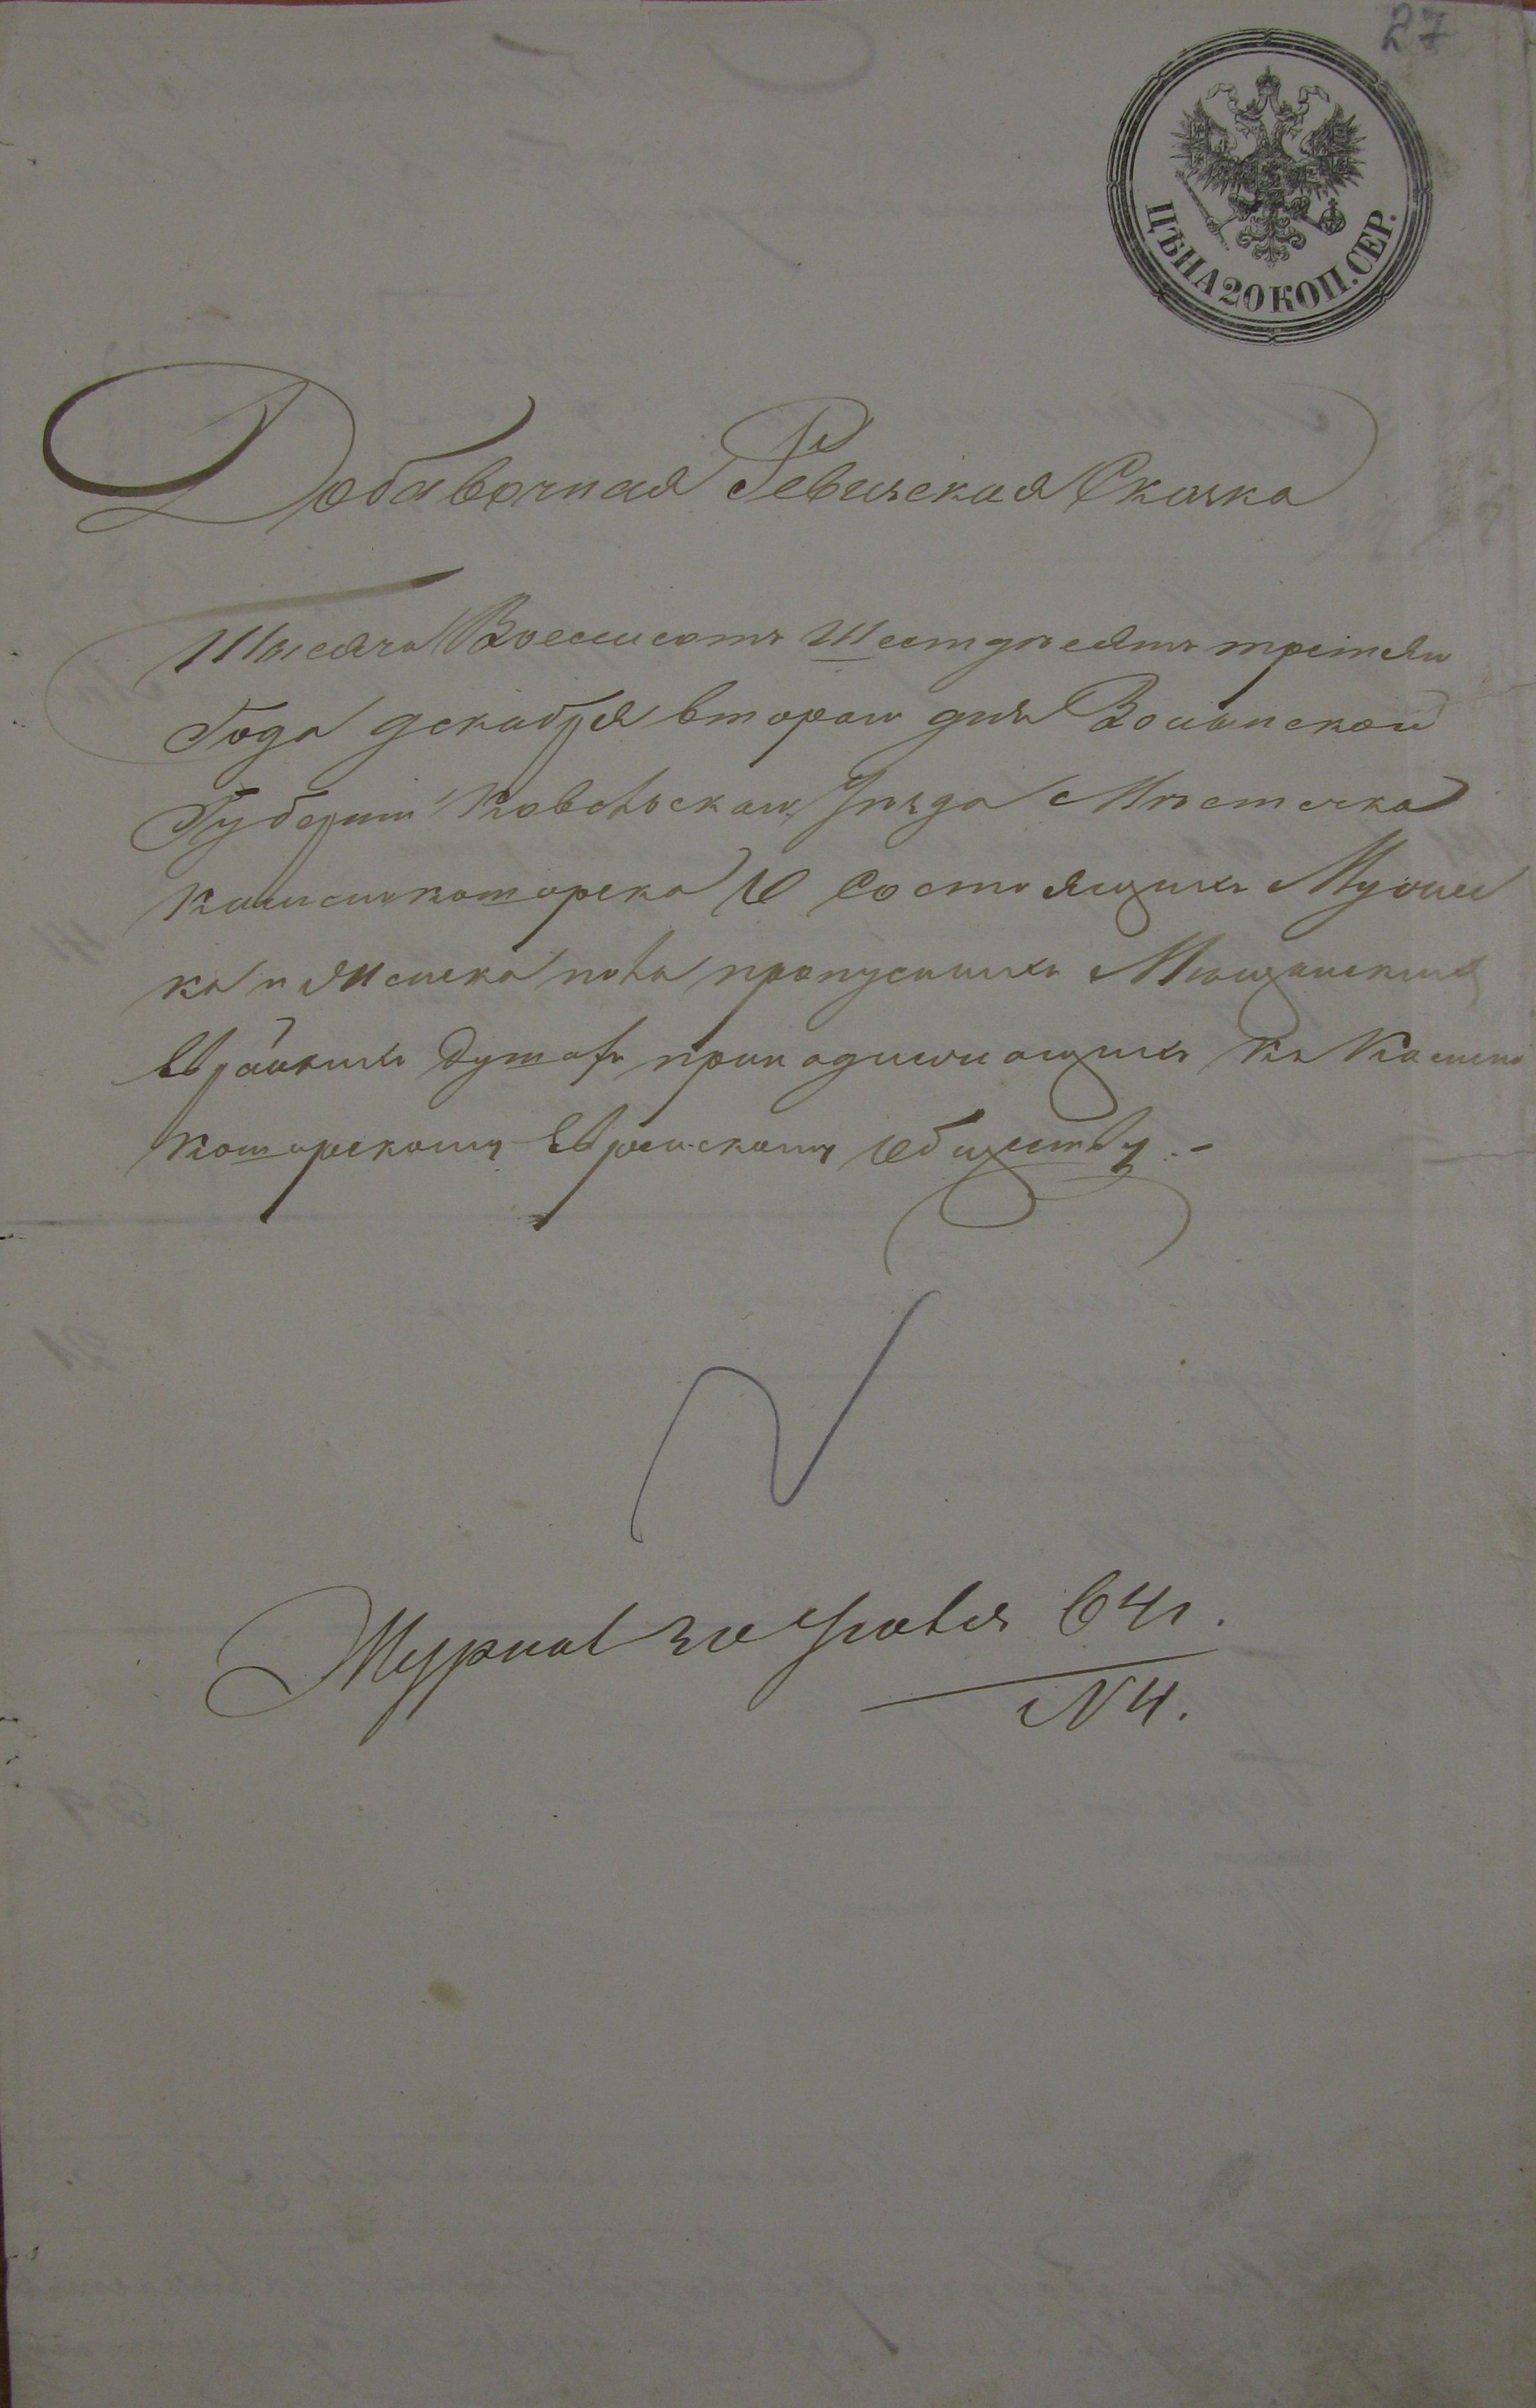 27
ЦѢНА 20 КОП. СЕР.
Добавочная Ревизская Сказка
Тысяча Восемсотъ Шестдесятъ третяго
Года декабря втораго дня Волынской
Губерніи Ковельскаго Уѣзда Мѣстечка
Каменкоширска О Состоящихъ Мужес
ка и Женска пола пропусныхъ Мѣщанскихъ
Еврейскихъ душахъ принадлежащихъ Къ Камень
Коширскому Еврейскому Обществу.-
Журнал 64г.
N 4.